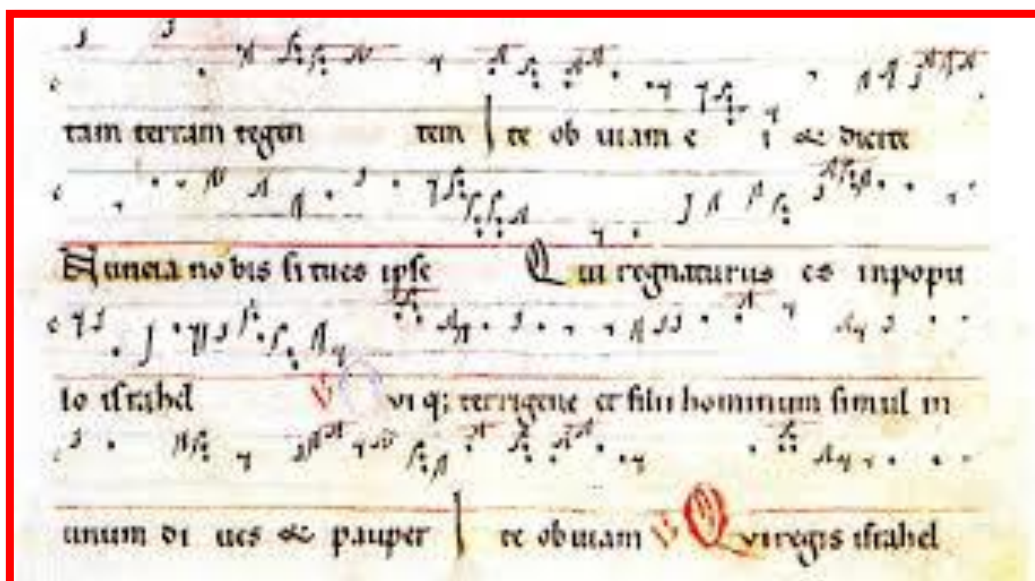 tam terram tegen tem te ob uiam e i & dicite
Nuncia nobis si tu es ipse Qui regnaturus es in popu
lo israhel V vi q; terrigene et filii hominum simul in
unum di ues & pauper te obuiam V Qui regis israhel